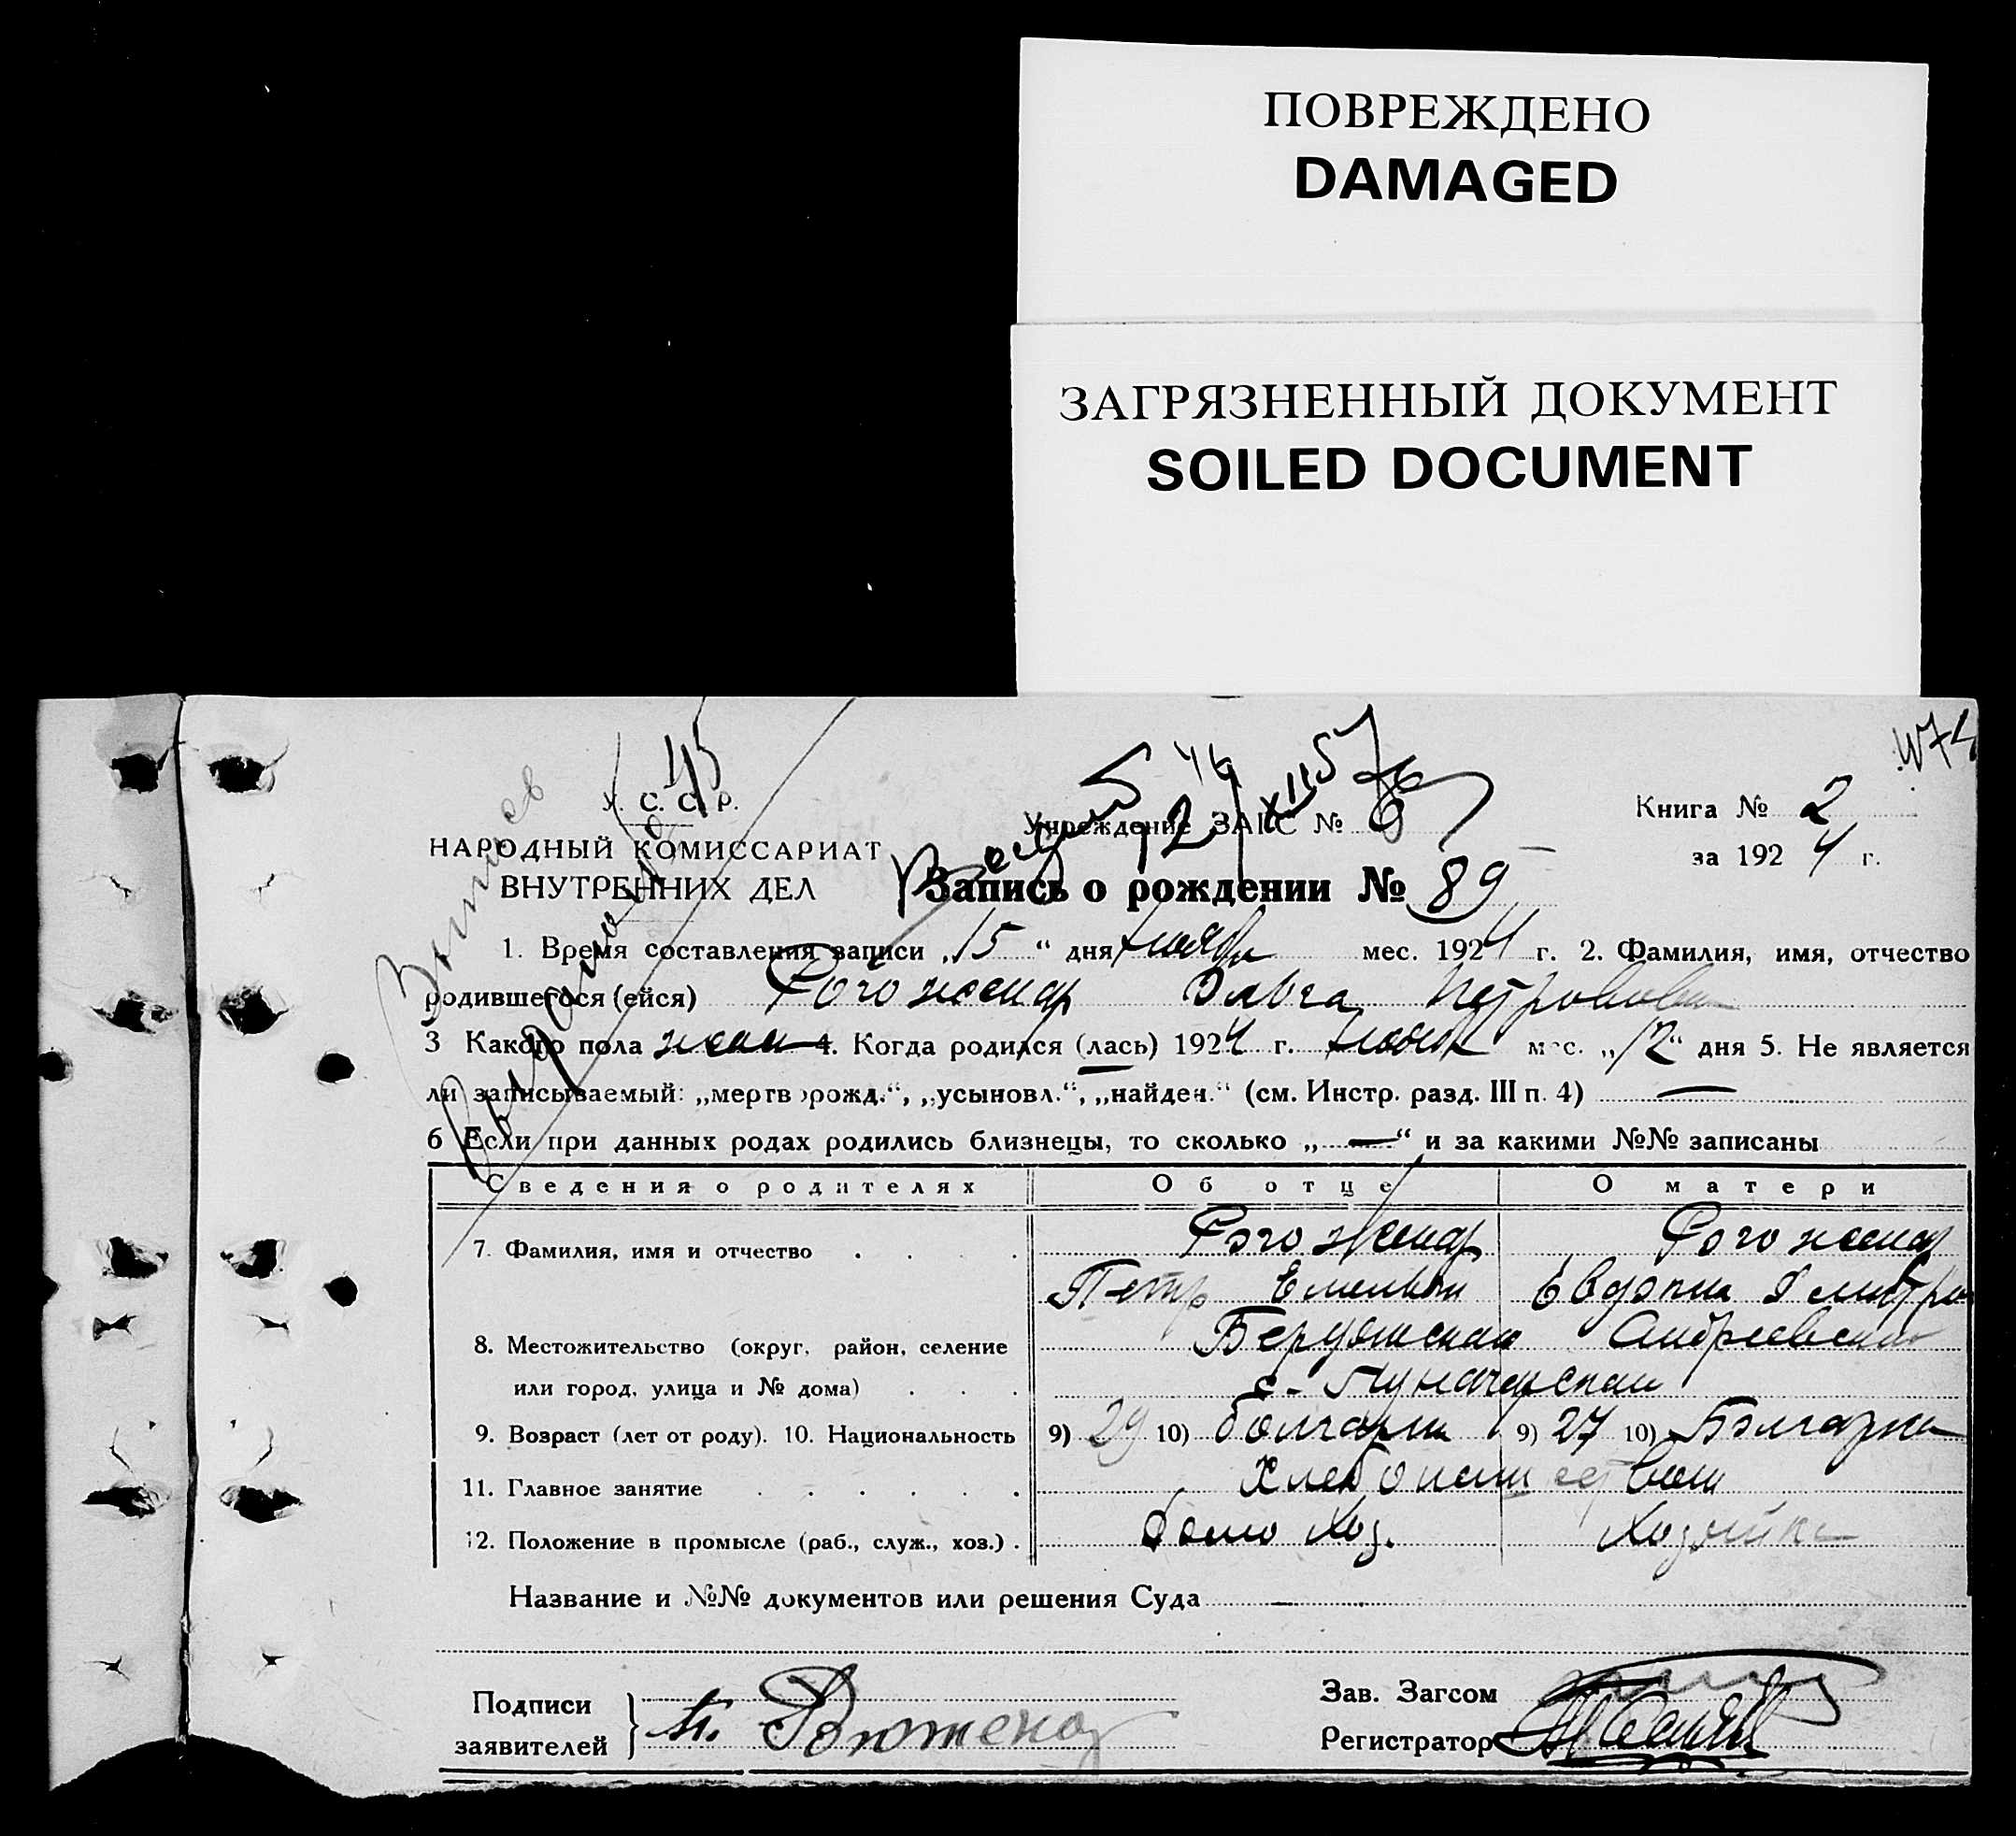 ПОВРЕЖДЕНО
DAMAGED
ЗАГРЯЗНЕННЫЙ ДОКУМЕНТ
SOILED DOCUMENT
У. С. С. Р.
НАРОДНЫЙ КОМИССАРИАТ
ВНУТРЕННИХ ДЕЛ
Учреждение ЗАГС №
Книга № 2
за 1924 г.
Запись о рождении № 89
1. Время составления записи „15“ дня ноября мес. 1924 г. 2. Фамилия, имя, отчество
родившегося (ейся) Рогоженар Ольга Петровова
3 Какого пола жен 4. Когда родился (лась) 1924 г. ноября мес. „12“ дня 5. Не является
ли записываемый: „мертворожд.“, „усыновл.“, „найден.“ (см. Инстр. разд. III п. 4) —
6 Если при данных родах родились близнецы, то сколько „—“ и за какими №№ записаны
Сведения о родителях Об отце О матери
7. Фамилия, имя и отчество Рогоженар Рогоженар
Петр Емельян Евдокия Дмитри
8. Местожительство (округ, район, селение Бердянский Андреевский
или город, улица и № дома) с. Луначарский
9. Возраст (лет от роду). 10. Национальность 9) 29 10) болгарин 9) 27 10) Болгарка
11. Главное занятие Хлебопашеством
12. Положение в промысле (раб., служ., хоз.) домохоз. Хозяйка
Название и №№ документов или решения Суда —
Подписи
заявителей
Зав. Загсом
Регистратор